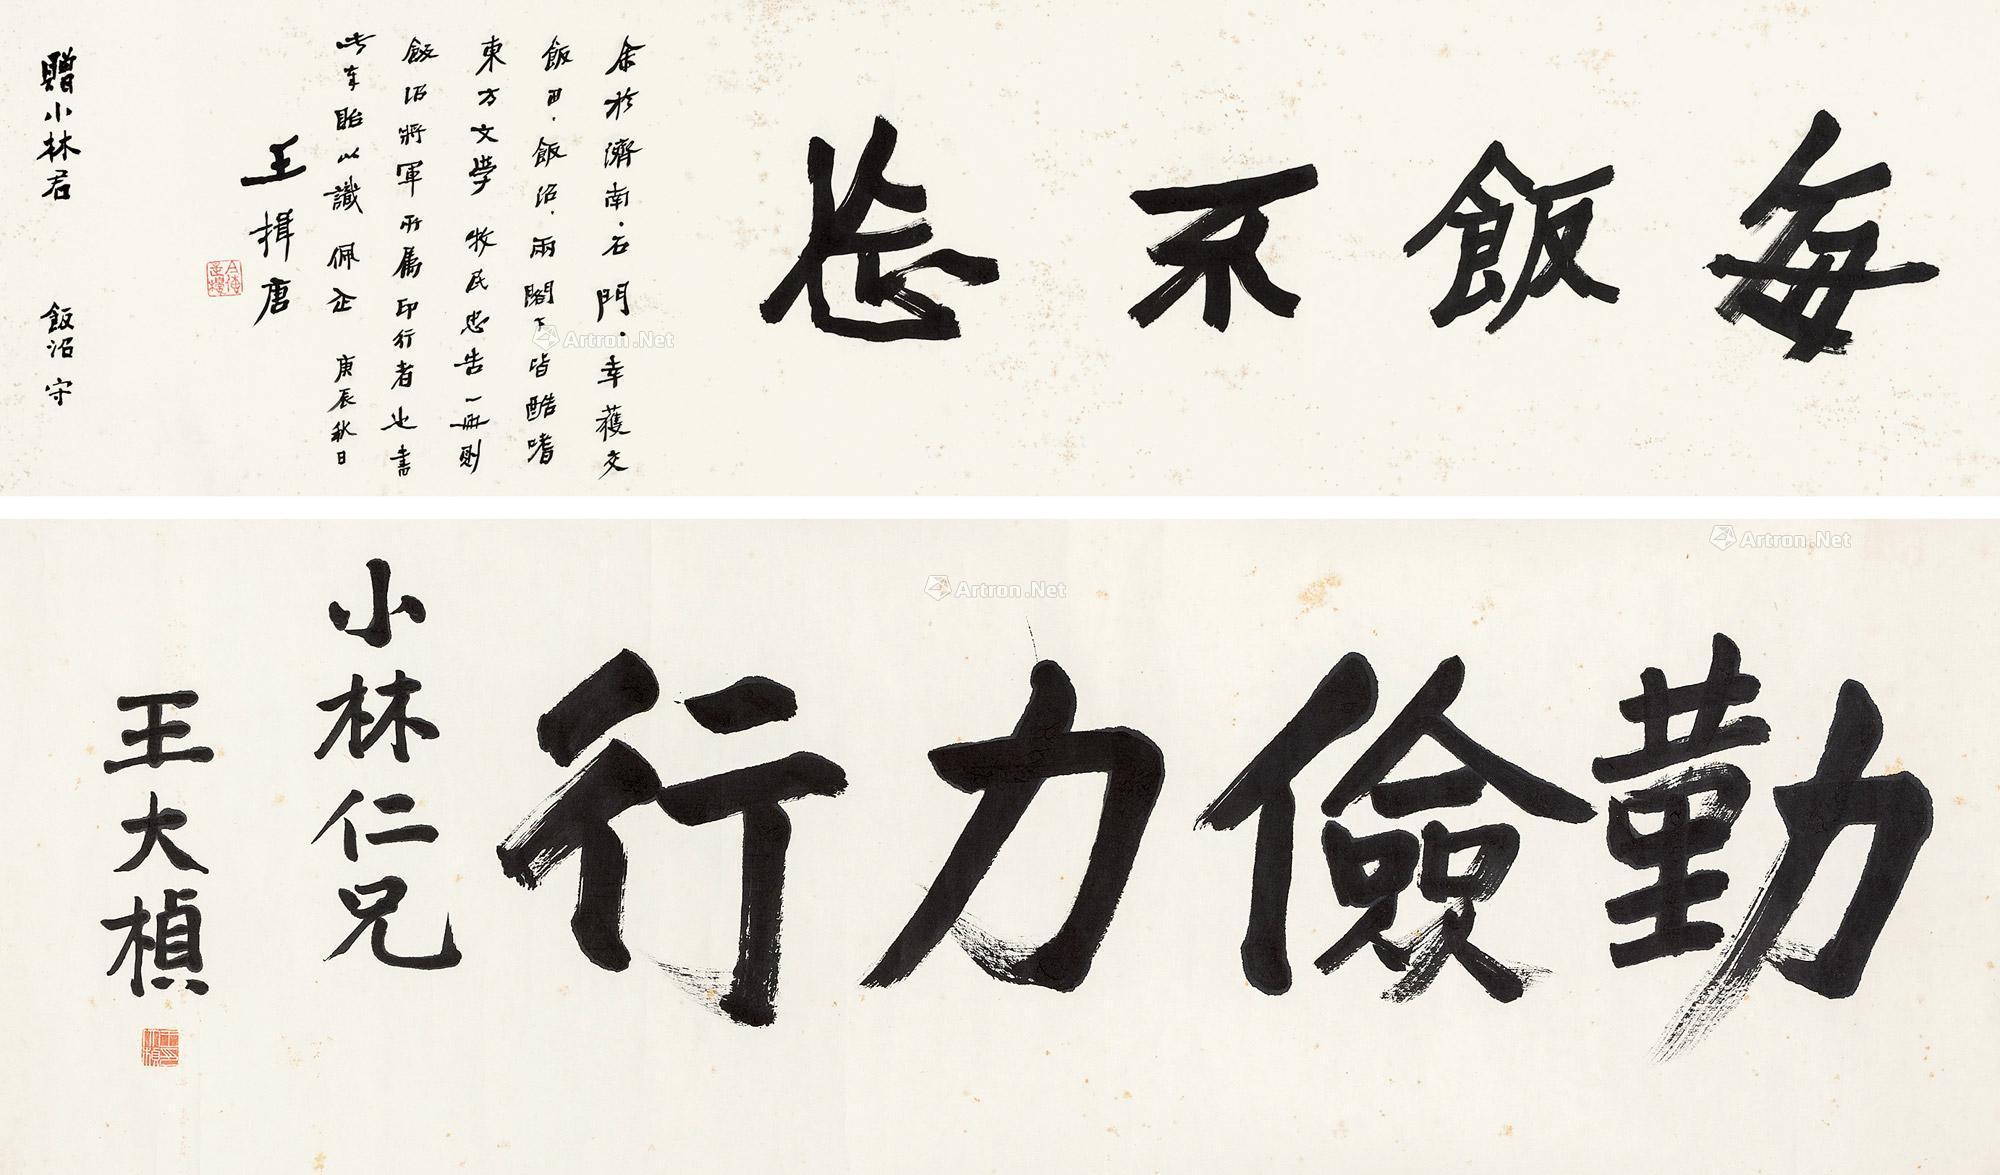 每飯不忘
余於濟南石門幸獲交
飯田飯沼兩閣下皆酷嗜
東方文學牧民忠告一冊則
飯沼將軍所屬印行者也書
此奉貽以識佩企 庚辰秋日
王揖唐
贈小林君 飯沼守
Artron.Net
勤儉力行
小林仁兄
王大楨
Artron.Net
Artron.Net